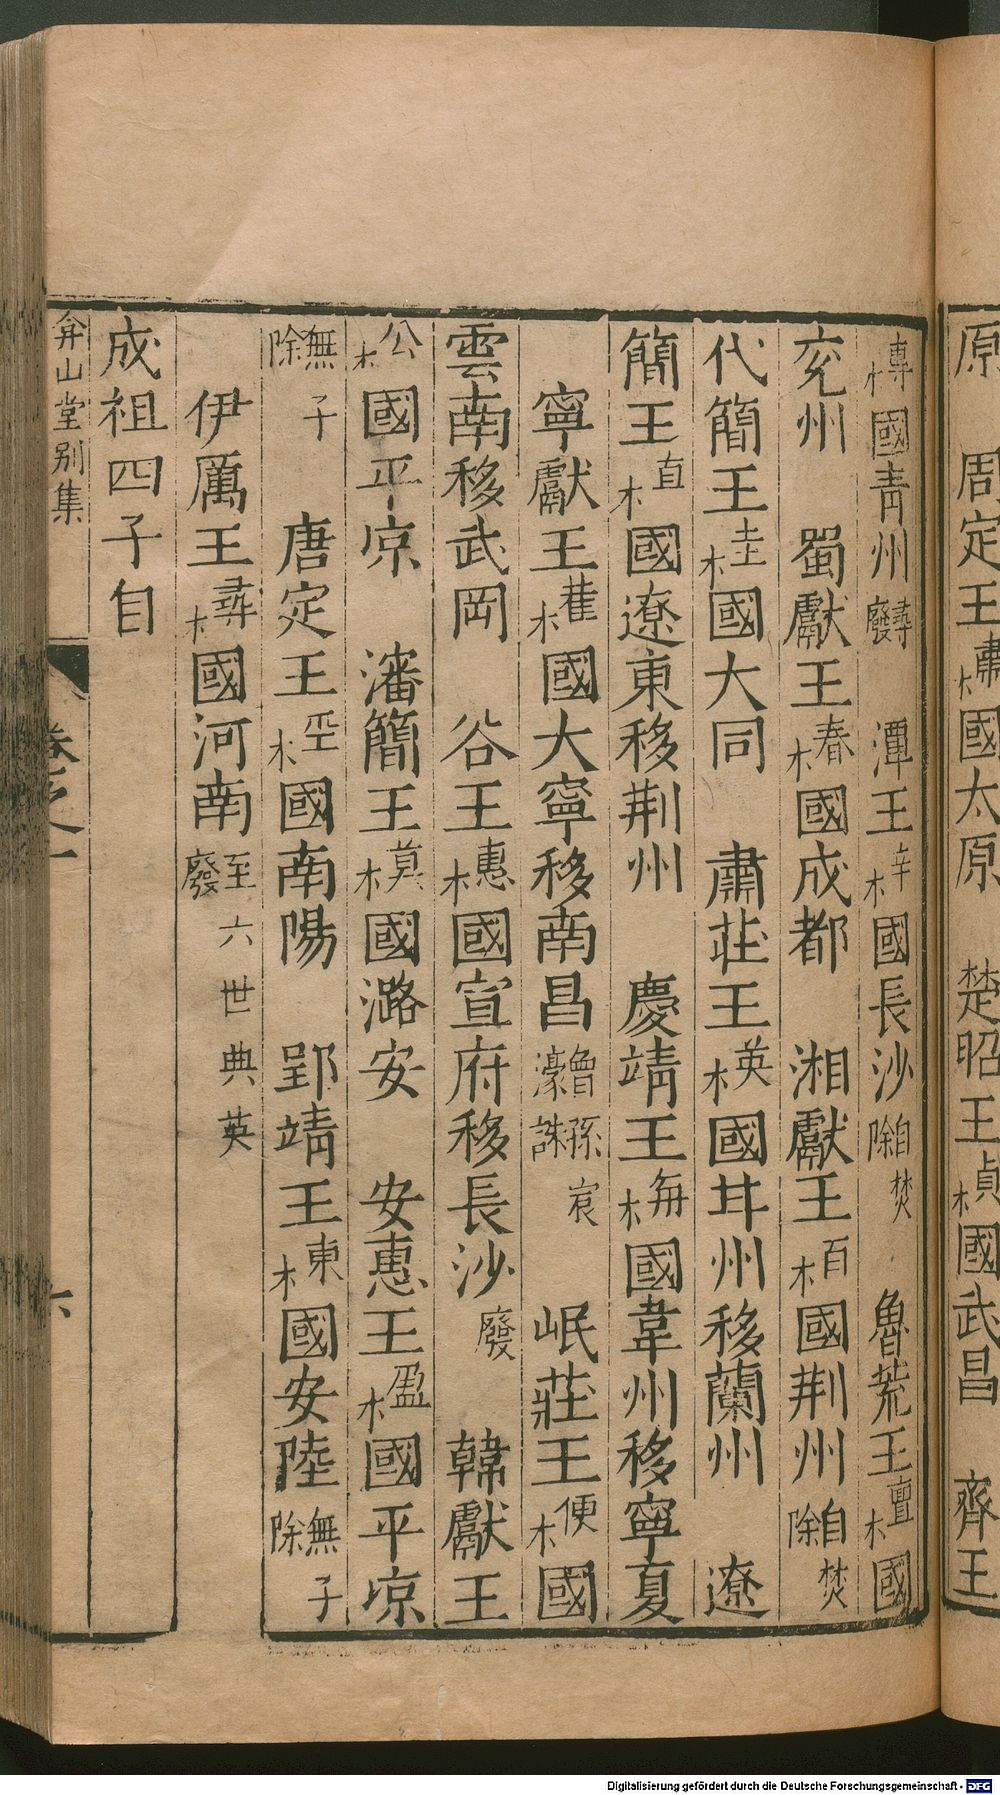 原　周定王橚國太原　楚昭王楨國武昌　齊王
榑國青州尋廢　潭王梓國長沙自焚除　魯荒王檀國
兖州　蜀獻王椿國成都　湘獻王柏國荆州自焚除
代簡王桂國大同　肅莊王楧國甘州移蘭州　遼
簡王植國遼東移荆州　慶靖王㮵國韋州移寧夏
寧獻王權國大寧移南昌曾孫宸濠誅　岷莊王楩國
雲南移武岡　谷王橞國宣府移長沙廢　韓獻王
松國平凉　瀋簡王模國潞安　安惠王楹國平凉
無子除　唐定王桱國南陽　郢靖王棟國安陸無子除
伊厲王㰘國河南至六世典英廢
成祖四子自
弇山堂别集　卷之一　六
Digitalisierung gefördert durch die Deutsche Forschungsgemeinschaft - DFG